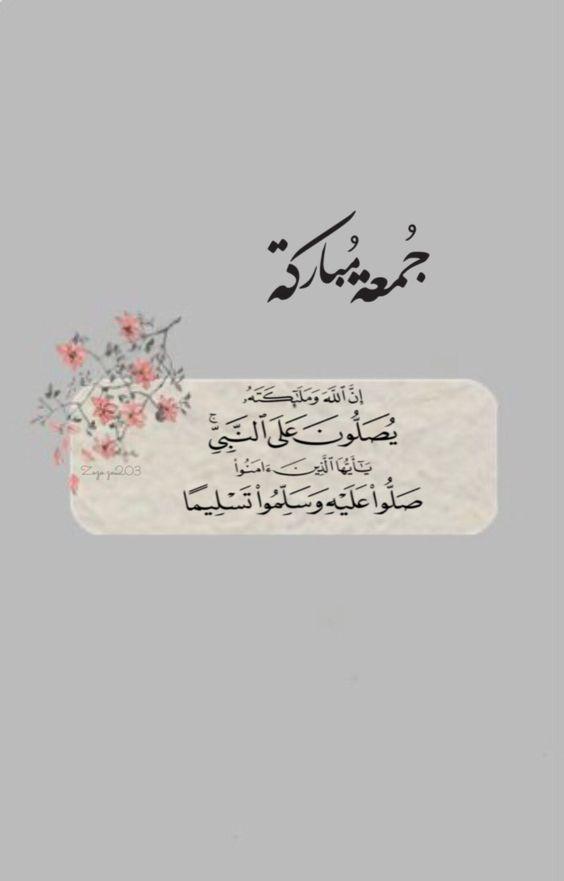 جُمعة مُباركة
إِنَّ ٱللَّهَ وَمَلَٰٓئِكَتَهُۥ
يُصَلُّونَ عَلَى ٱلنَّبِيِّۚ
يَٰٓأَيُّهَا ٱلَّذِينَ ءَامَنُوا۟
صَلُّوا۟ عَلَيْهِ وَسَلِّمُوا۟ تَسْلِيمًا